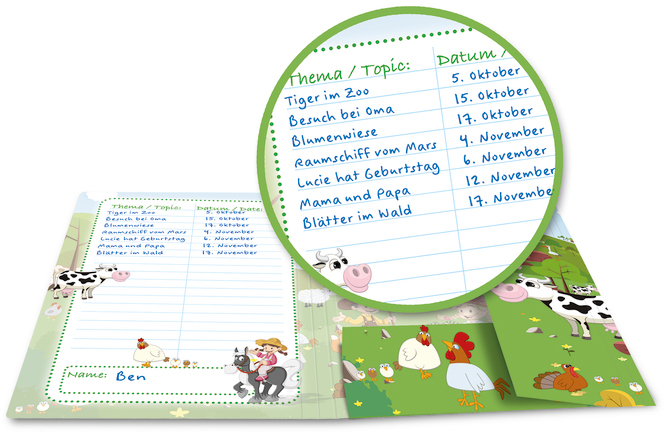 Thema / Topic: Datum / Date:
Tiger im Zoo 5. Oktober
Besuch bei Oma 15. Oktober
Blumenwiese 17. Oktober
Raumschiff vom Mars 4. November
Lucie hat Geburtstag 6. November
Mama und Papa 12. November
Blätter im Wald 17. November
Name: Ben
Thema / Topic: Datum /
Tiger im Zoo 5. Oktober
Besuch bei Oma 15. Oktober
Blumenwiese 17. Oktober
Raumschiff vom Mars 4. November
Lucie hat Geburtstag 6. November
Mama und Papa 12. November
Blätter im Wald 17. November